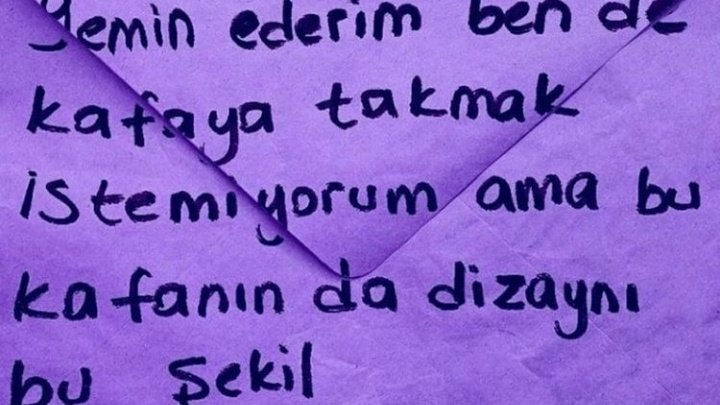 Yemin ederim ben de
kafaya takmak
istemiyorum ama bu
kafanın da dizaynı
bu şekil